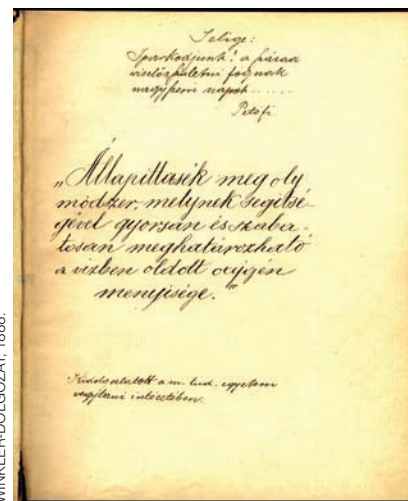 Jelige:
Iparkodjunk! a hazad
nagyszerü napok.......
Petőfi
„Állapittassék meg oly
módszer, melynek segitsé-
gével gyorsan és szaba-
tosan meghatározható
a vizben oldott oxigén
menyisége."
Kidolgoztatott a m. tud. egyetem
vegytani intézetében.
WINKLER-DOLGOZAT, 1888.